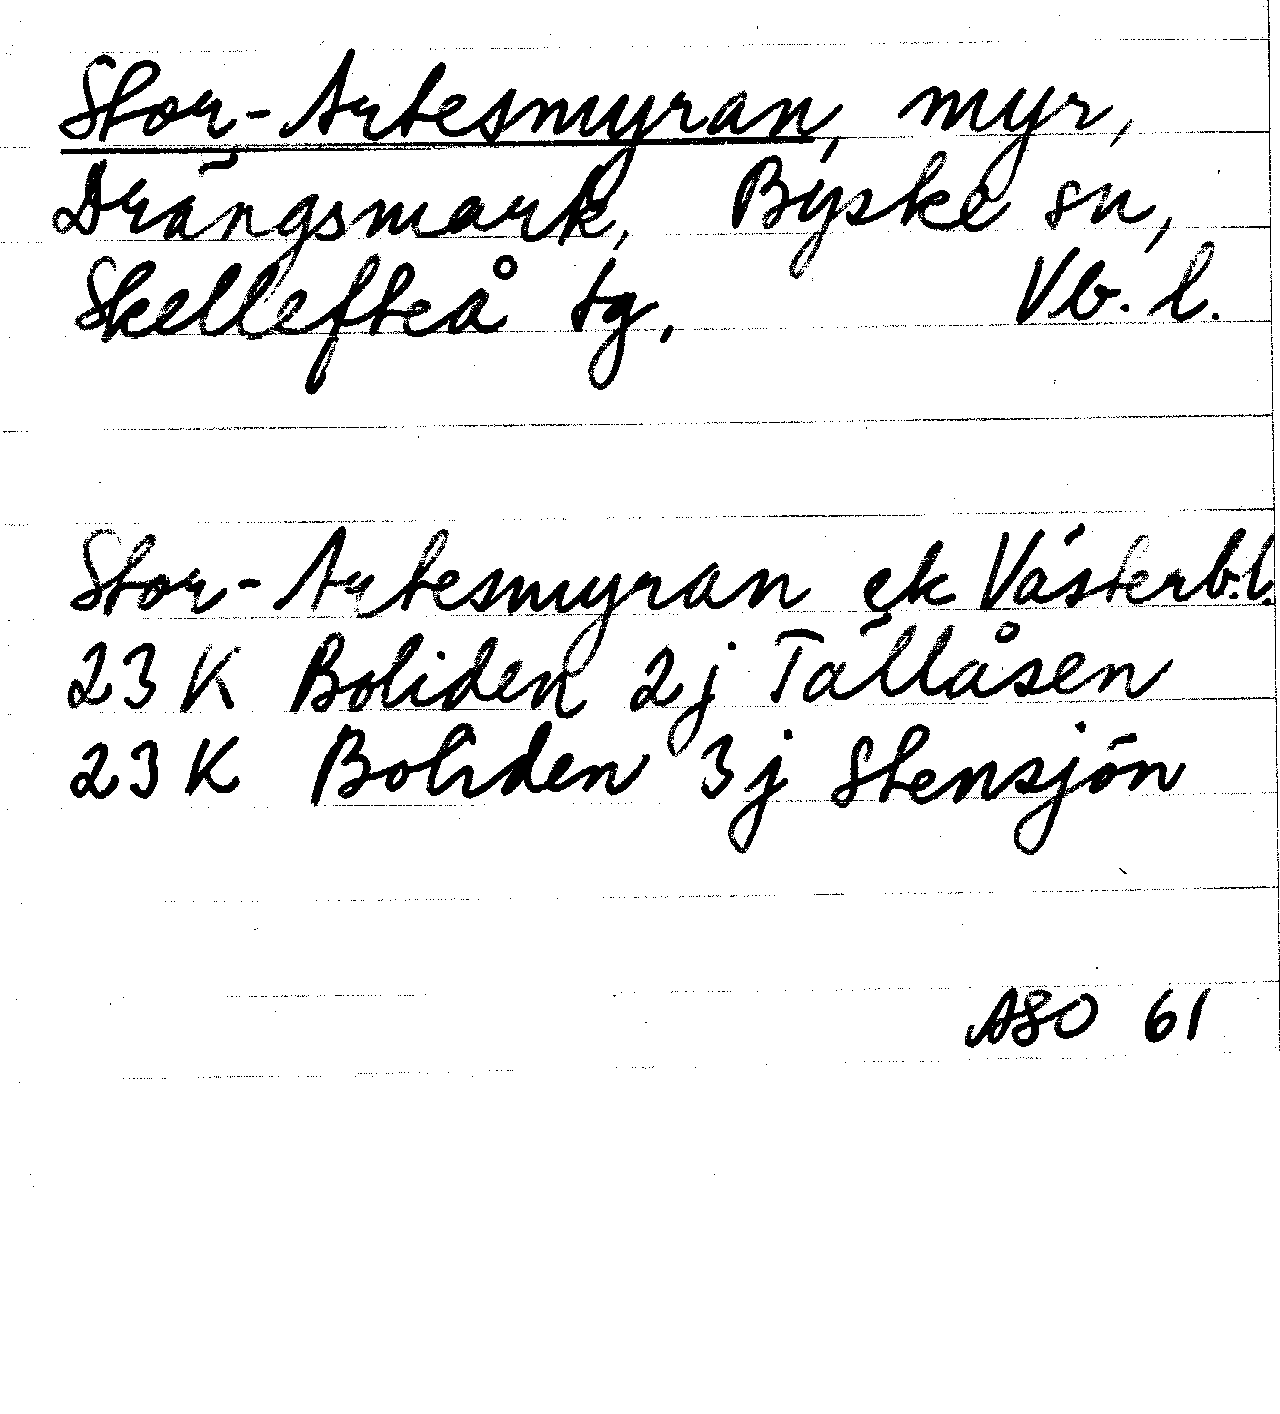 Stor-Artesmyran, myr,
Drängsmark, Byske sn,
Skellefteå tg, Vb. l.
Stor-Artesmyran ek Västerb.l.
23 K Boliden 2j Tällåsen
23 K Boliden 3j Stensjön
ASO 61